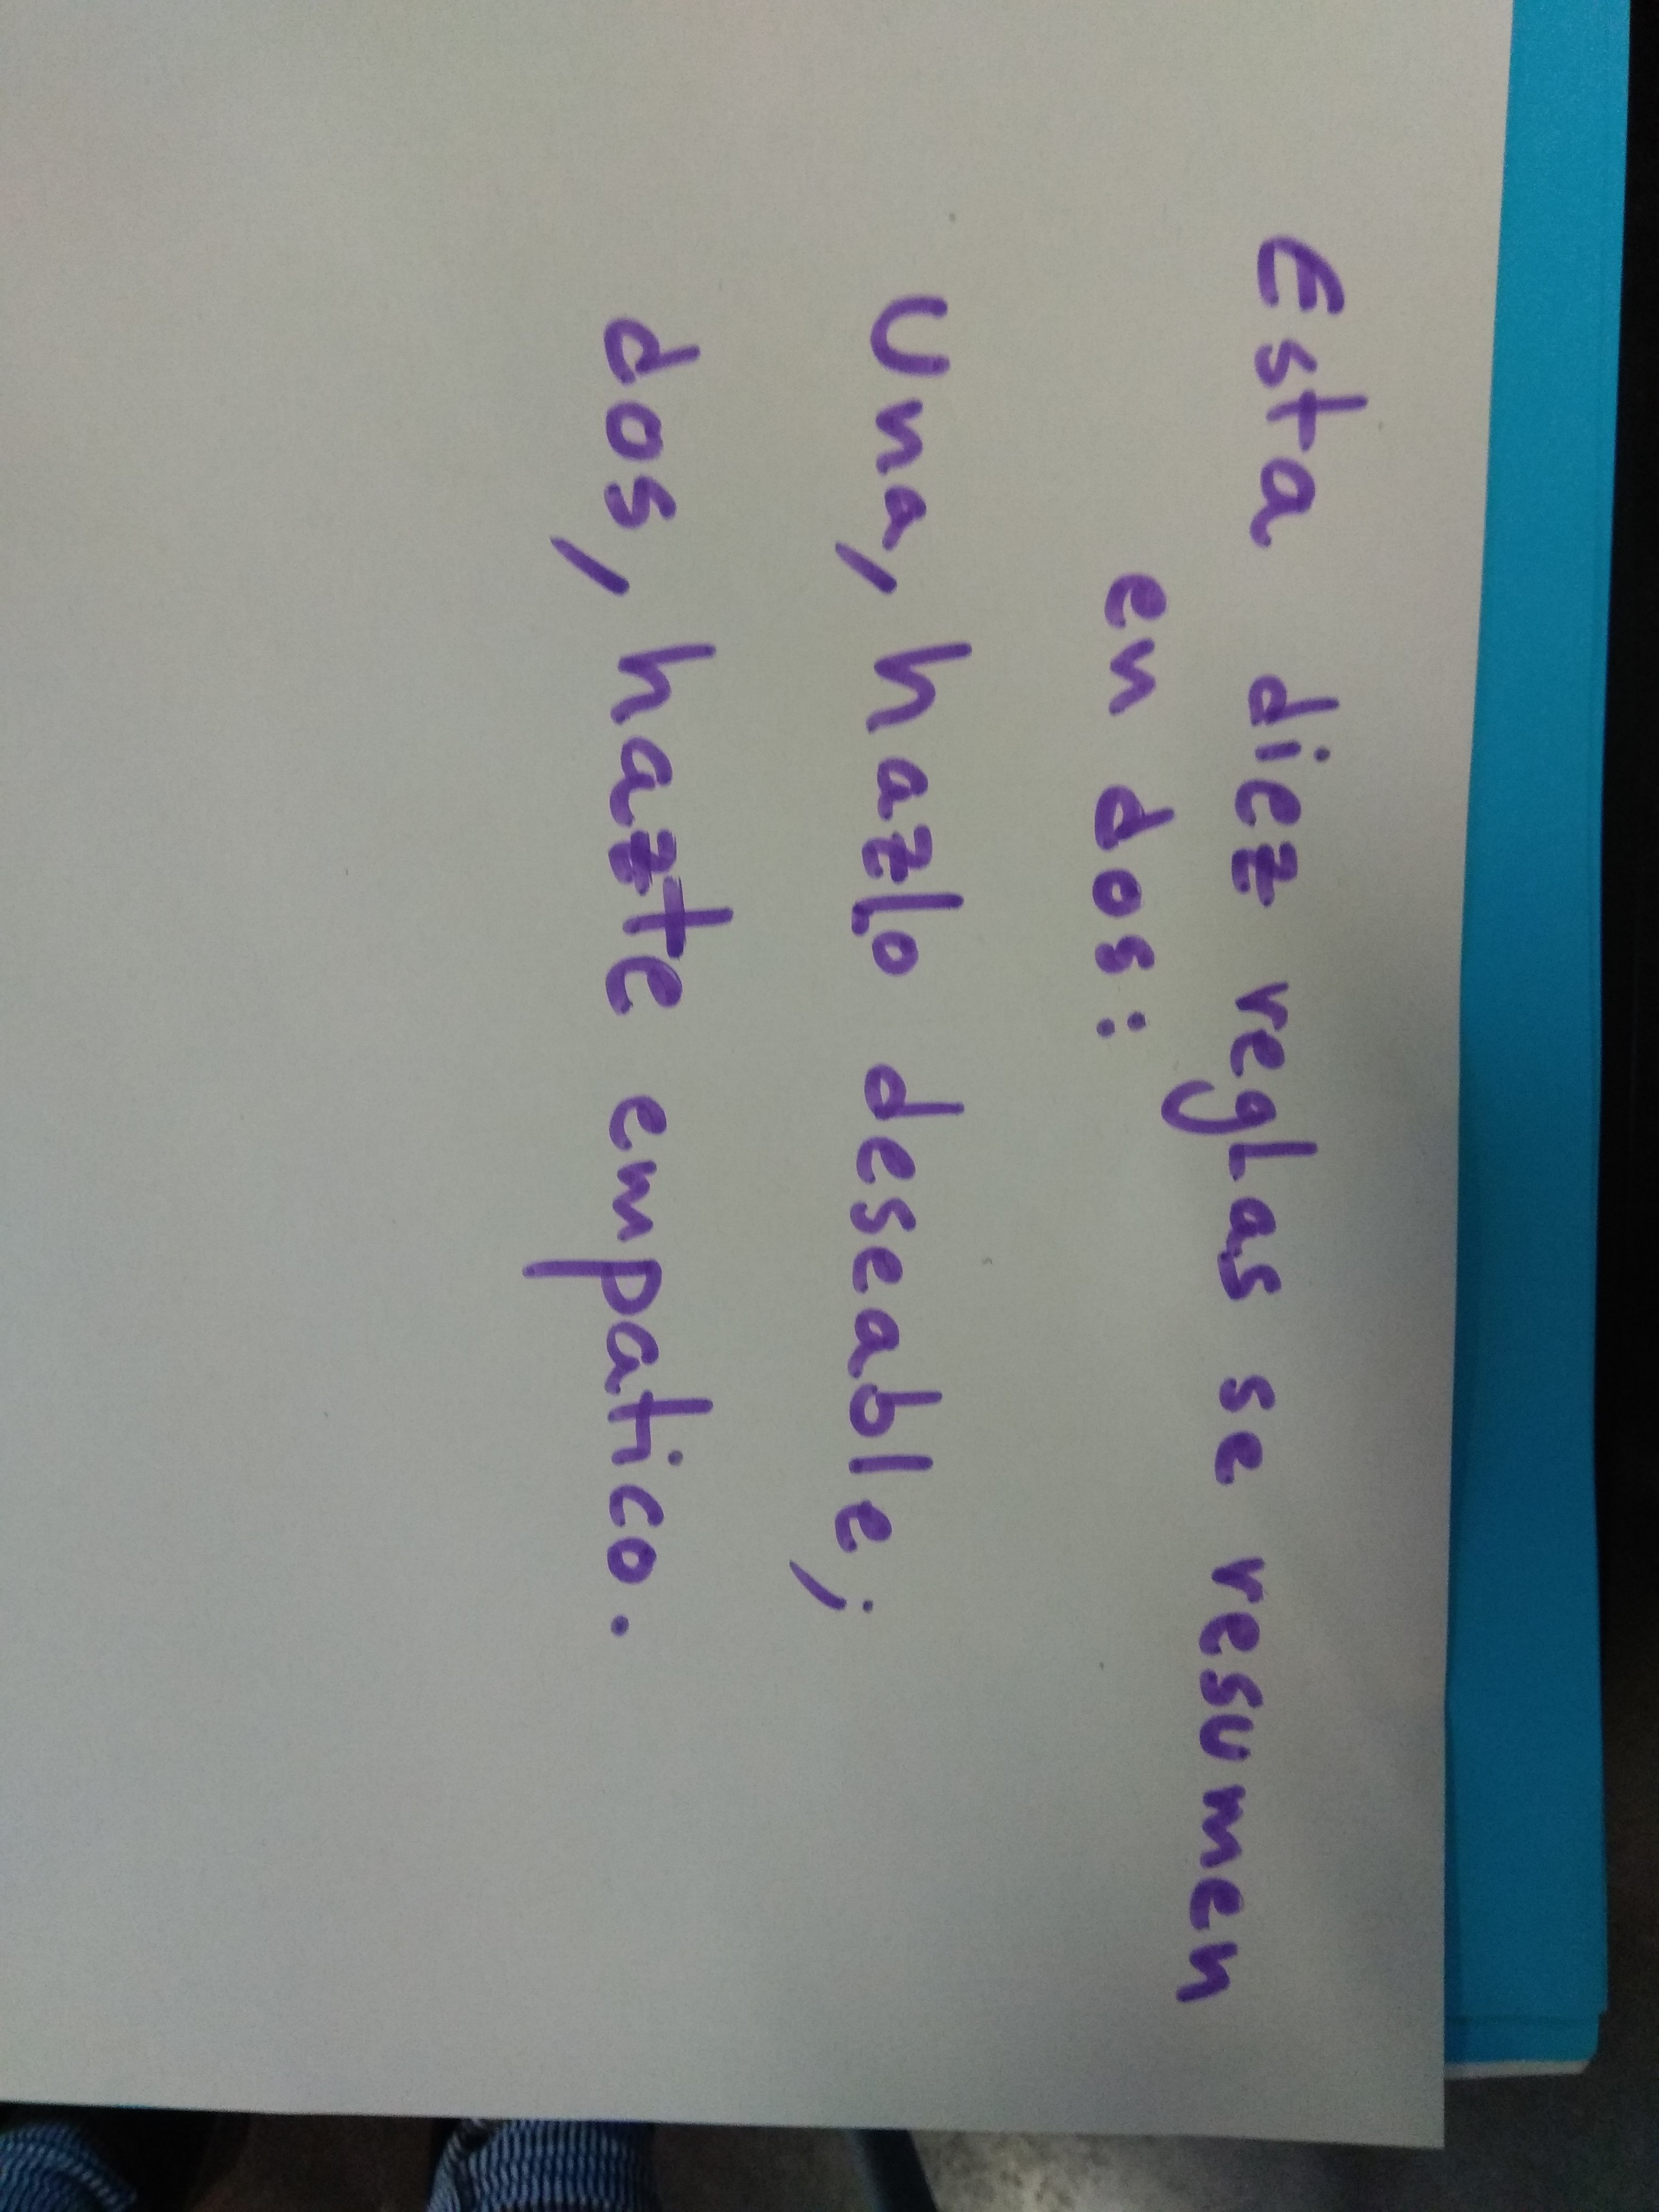 Esta diez reglas se resumen
en dos:
Una, hazlo deseable;
dos, hazte empatico.